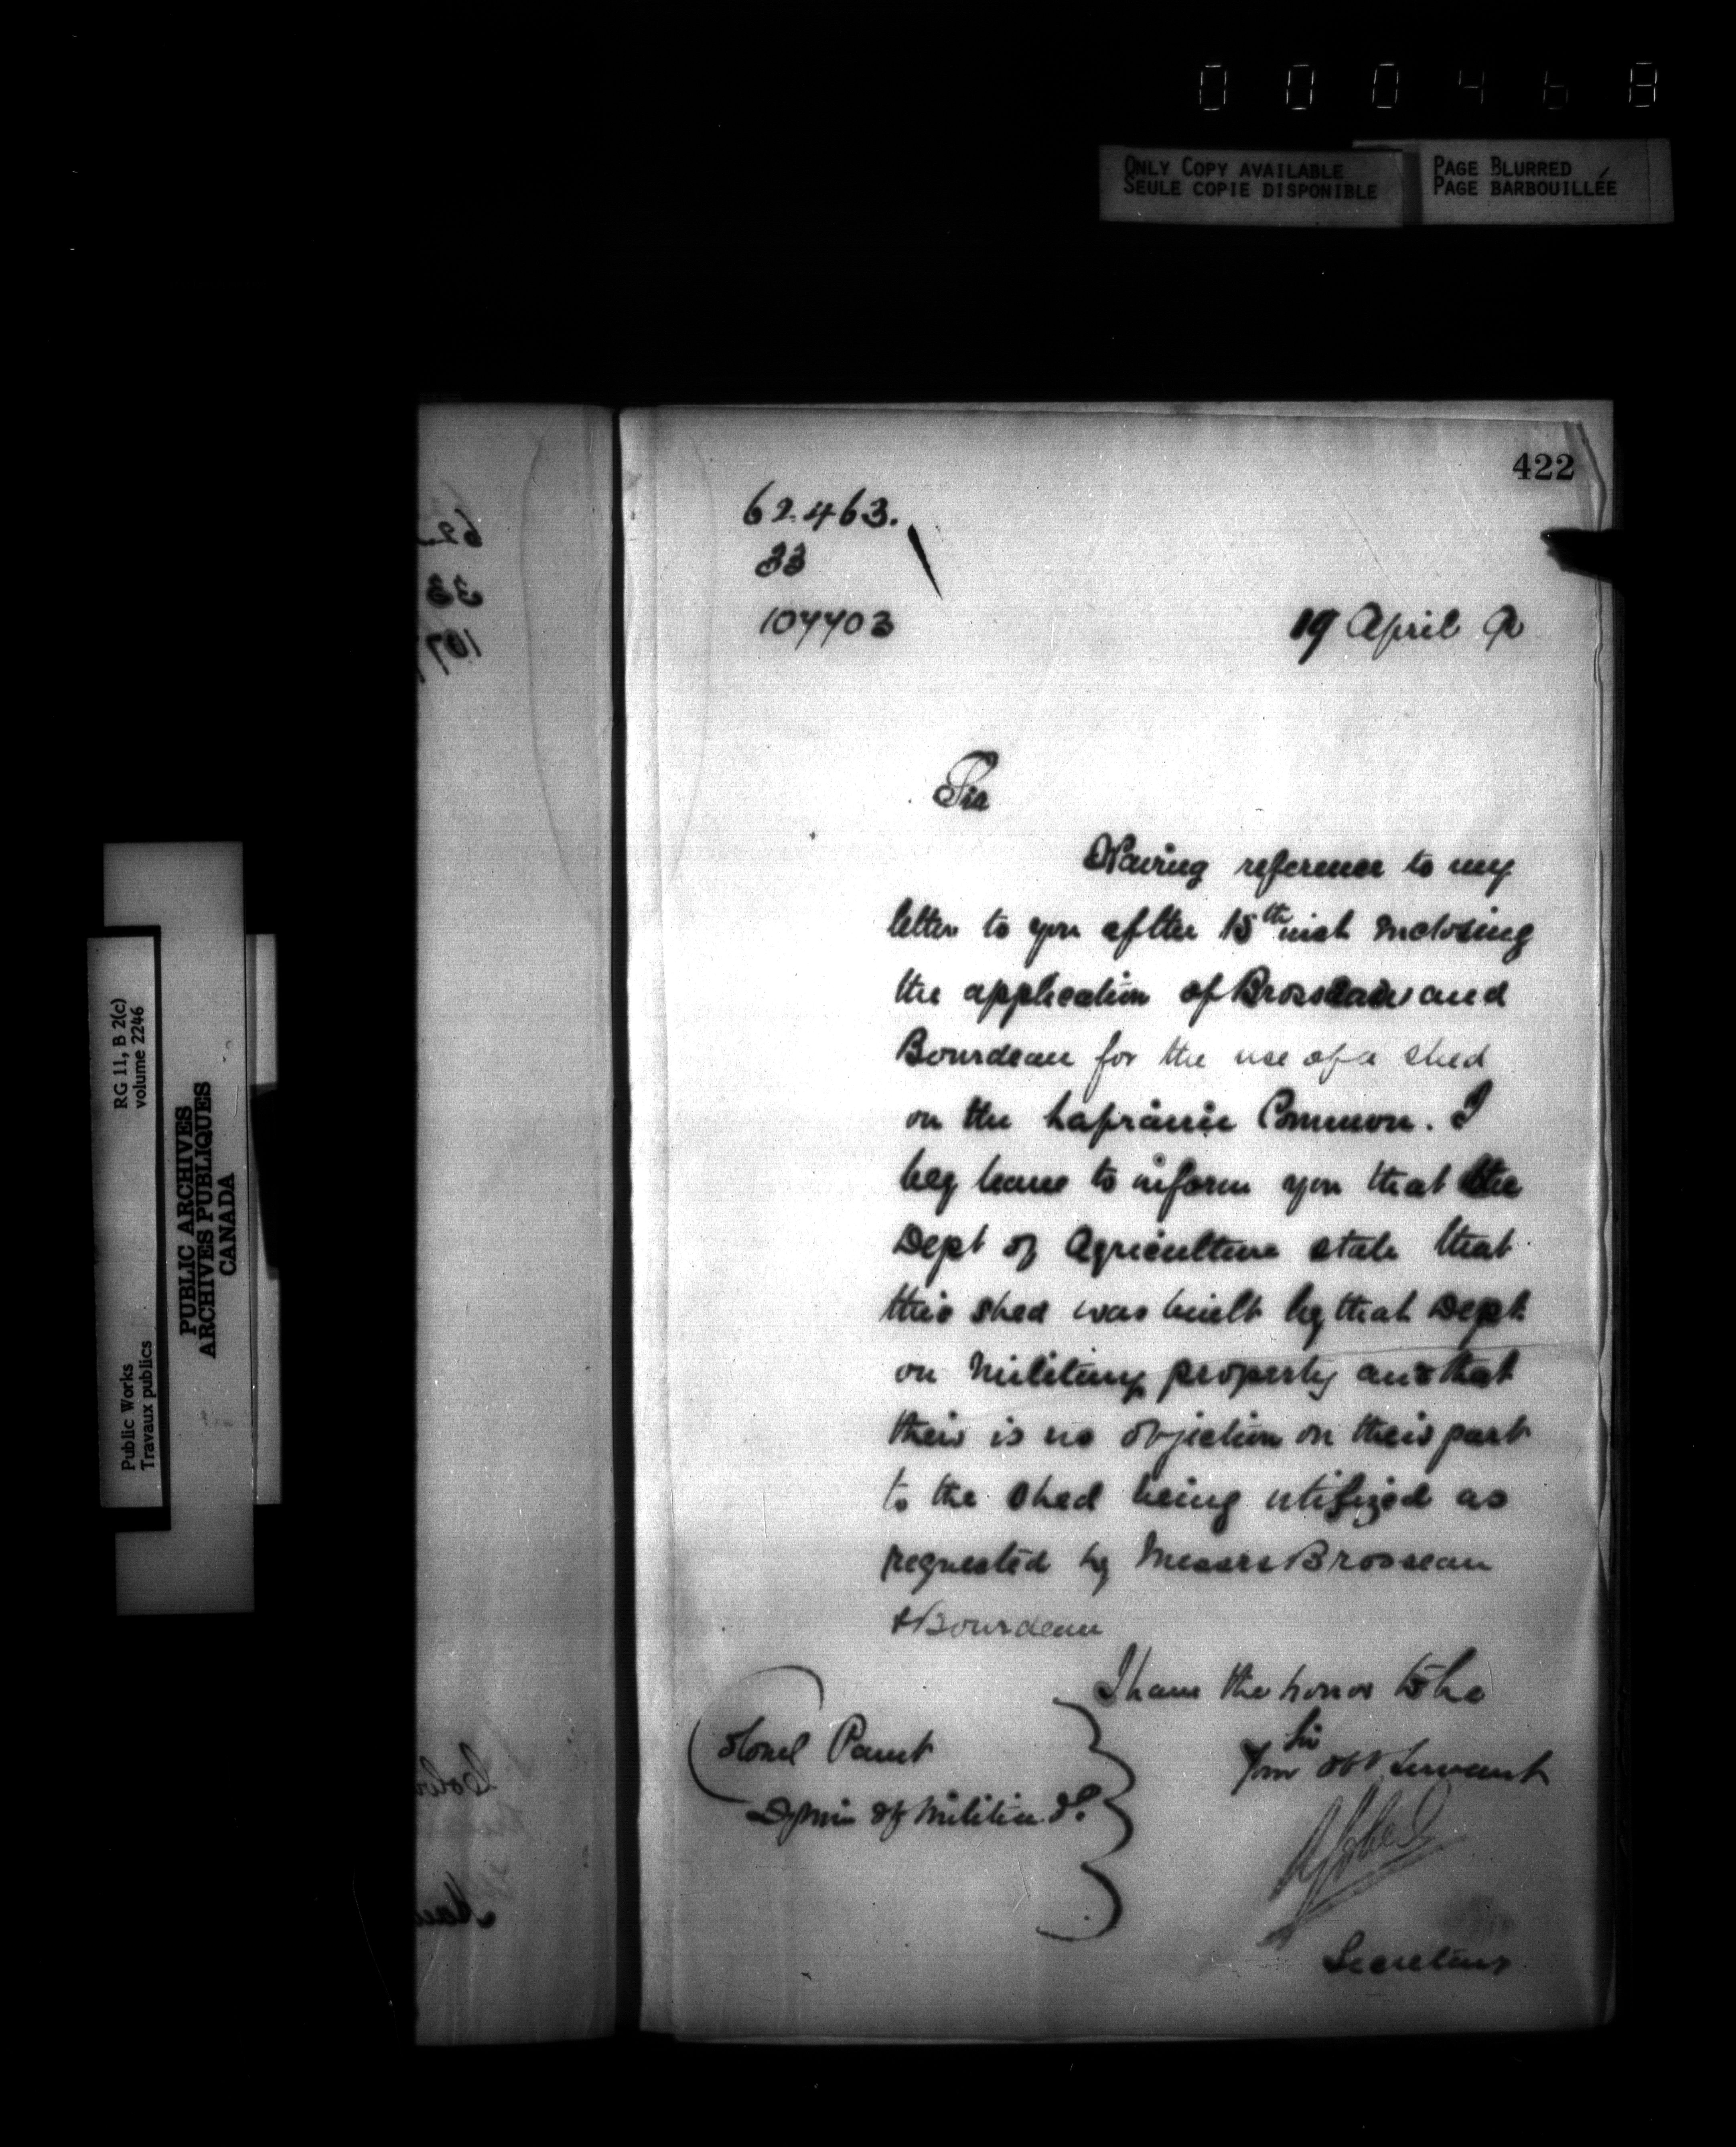 000468
ONLY COPY AVAILABLE
SEULE COPIE DISPONIBLE
PAGE BLURRED
PAGE BARBOUILLÉE
422
62.463.
33
107703
19 April 90
Sir
Having reference to my
letter to you of the 15th inst inclosing
the application of Brosseau and
Bourdeau for the use of a shed
on the Laprairie Common. I
beg leave to inform you that the
Dept of Agriculture state that
this shed was built by that Dept.
on Military property and that
their is no objection on their part
to the shed being utilized as
requested by Messrs Brosseau
& Bourdeau
I have the honor to be
Sir
Your obt Servant
Secretary
Colonel Panet
D/Min of Militia &c
Public Works
Travaux publics
RG 11, B 2(c)
volume 2246
PUBLIC ARCHIVES
ARCHIVES PUBLIQUES
CANADA